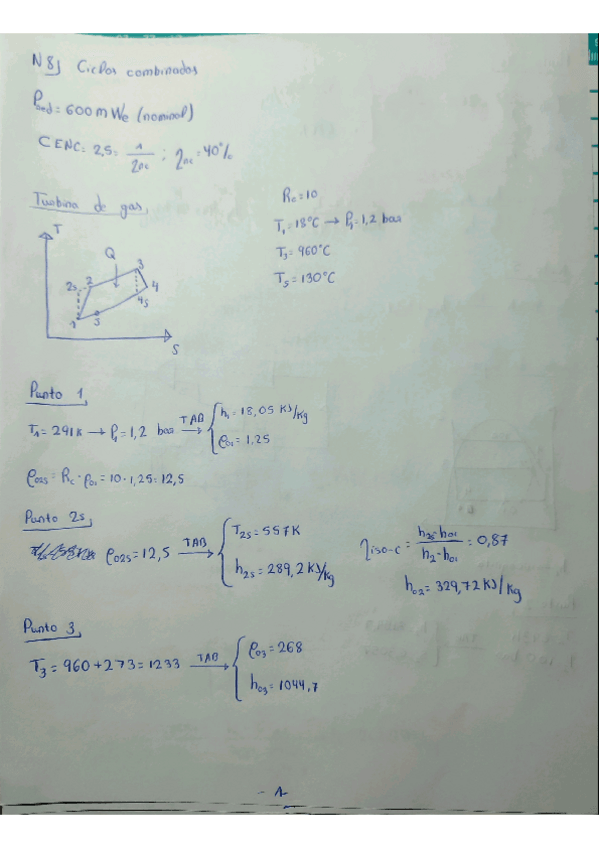 N8) Ciclos combinados
Pned = 600 mWe (nominal)
CENC = 2,5 = 1/ηnc ; ηnc = 40%
Turbina de gas,
Rc = 10
T1 = 18°C → P1 = 1,2 bar
T3 = 960°C
T5 = 130°C
T
Q
3
2s 2
4
4s
1 5
S
Punto 1,
T1 = 291K → P1 = 1,2 bar TAB → { h1 = 18,05 KJ/Kg
ρ01 = 1,25
ρ02s = Rc · ρ01 = 10 · 1,25 = 12,5
Punto 2s,
ρ02s = 12,5 TAB → { T2s = 557K
h2s = 289,2 KJ/Kg
ηiso-c = h2s-h01 / h2-h01 = 0,87
h02 = 329,72 KJ/Kg
Punto 3,
T3 = 960 + 273 = 1233 TAB → { ρ03 = 268
h03 = 1044,7
- 1 -